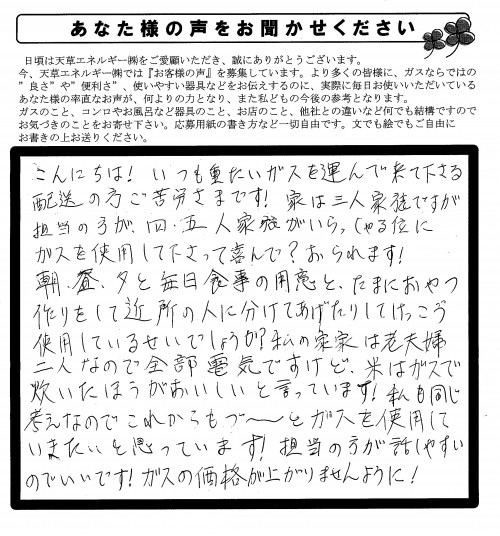 あなた様の声をお聞かせください
日頃は天草エネルギー㈱をご愛顧いただき、誠にありがとうございます。
今、天草エネルギー㈱では『お客様の声』を募集しています。より多くの皆様に、ガスならではの
”良さ”や”便利さ”、使いやすい器具などをお伝えするのに、実際に毎日お使いいただいている
あなた様の率直なお声が、何よりの力となり、また私どもの今後の参考となります。
ガスのこと、コンロやお風呂など器具のこと、お店のこと、他社との違いなど何でも結構ですので
お気づきのことをお寄せ下さい。応募用紙の書き方など一切自由です。文でも絵でもご自由に
お書きの上お送りください。
こんにちは! いつも重たいガスを運んで来て下さる
配送の方ご苦労さまです! 家は三人家族ですが
担当の方が、四・五人家族がいらっしゃる位に
ガスを使用して下さって喜んで?おられます!
朝・昼・夕と毎日食事の用意と、たまにおやつ
作りをして近所の人に分けてあげたりしてけっこう
使用しているせいでしょうか?私の実家は老夫婦
二人なので全部電気ですけど、米はガスで
炊いたほうがおいしいと言っています!私も同じ
考えなのでこれからもづ〜〜とガスを使用して
いきたいと思っています!担当の方が話しやすい
のでいいです!ガスの価格が上がりませんように!